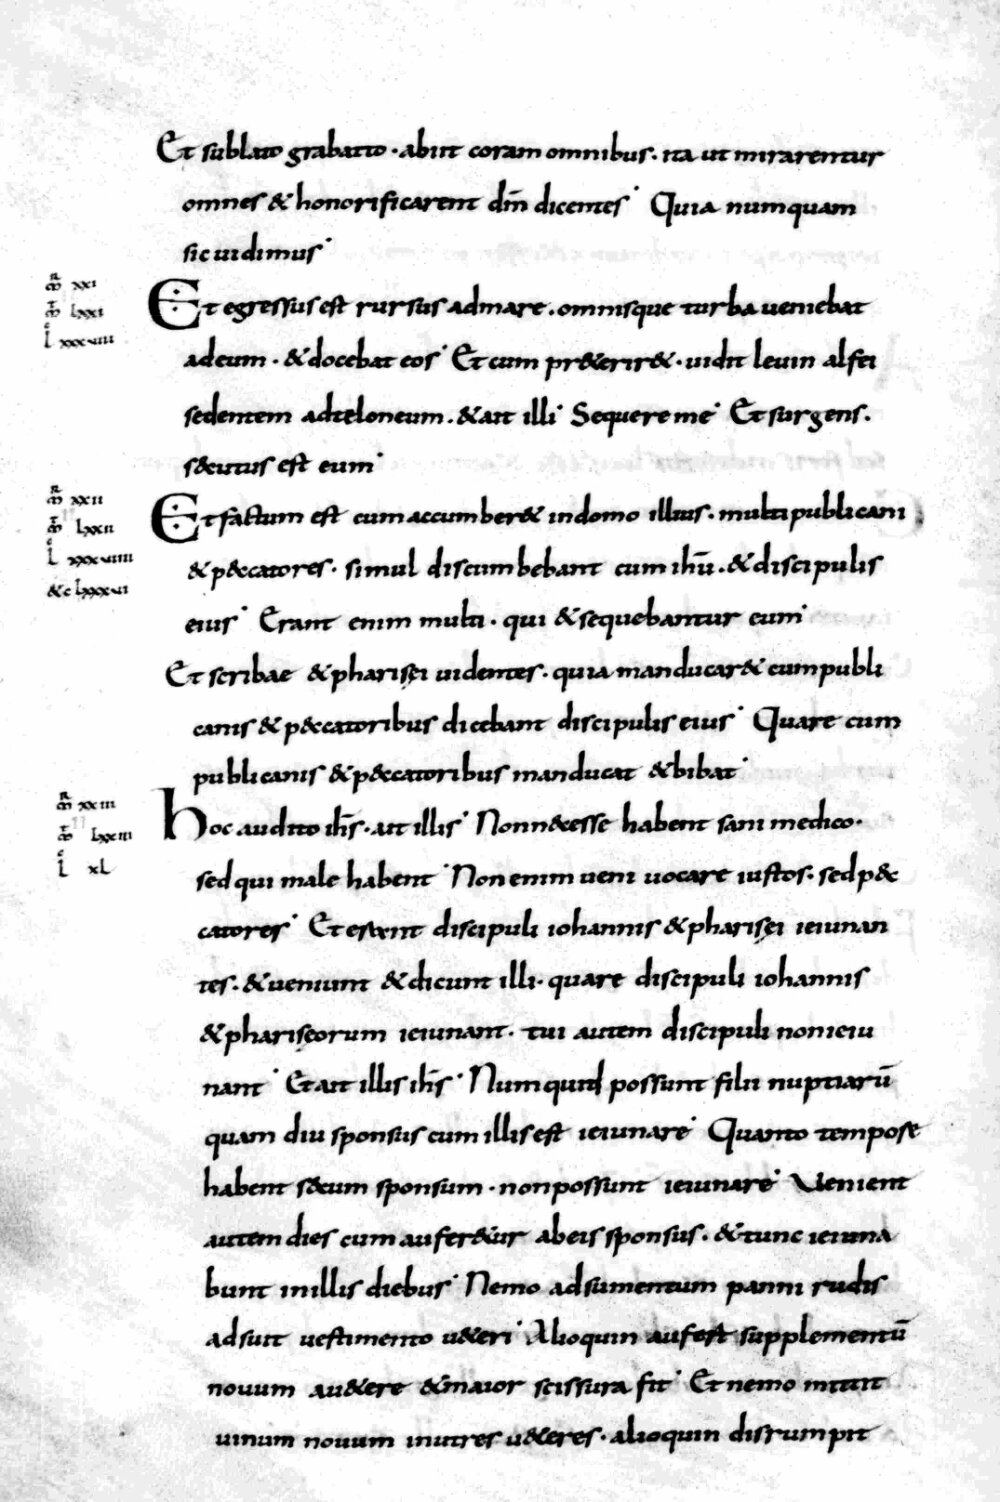 Et sublato grabatto · abiit coram omnibus · ita ut mirarentur
omnes & honorificarent dm̄ dicentes · Quia numquam
sic uidimus ·
m̄r xxi
m̄t lxxi
l xxxuiii
Et egressus est rursus admare · omnisque turba ueniebat
adeum · & docebat eos · Et cum pr&erir& · uidit leuin alfei
sedentem adteloneum · & ait illi · Sequere me · Et surgens ·
s&cutus est eum ·
m̄r xxii
m̄t lxxii
l xxxuiiii
Et factum est cum accumber& indomo illius · multi publicani
& p&ccatores · simul discumbebant cum ih̄u · & discipulis
eius · Erant enim multi · qui & sequebantur eum ·
Et scribae & pharisęi uidentes · quia manducar& cum publi
canis & p&ccatoribus dicebant discipulis eius · Quare cum
publicanis & p&ccatoribus manducat & bibat ·
m̄r xxiii
m̄t lxxiii
l xL
hoc audito ih̄s · ait illis · Non n&cesse habent sani medico ·
sed qui male habent · Non enim ueni uocare iustos · sed p&c
catores · Et erant discipuli iohannis & pharisęi ieiunan
tes · & ueniunt & dicunt illi · quare discipuli iohannis
& pharisęorum ieiunant · tui autem discipuli non ieiu
nant · Et ait illis ih̄s · Numquid possunt filii nuptiarū
quam diu sponsus cum illis est ieiunare · Quanto tempore
habent s&cum sponsum · non possunt ieiunare · Uenient
autem dies cum aufer&ur abeis sponsus · & tunc ieiuna
bunt inillis diebus · Nemo adsumentum panni rudis
adsuit uestimento u&eri · Alioquin aufert supplementū
nouum au&ere & maior scissura fit · Et nemo mittit
uinum nouum inutres u&eres · alioquin disrumpit